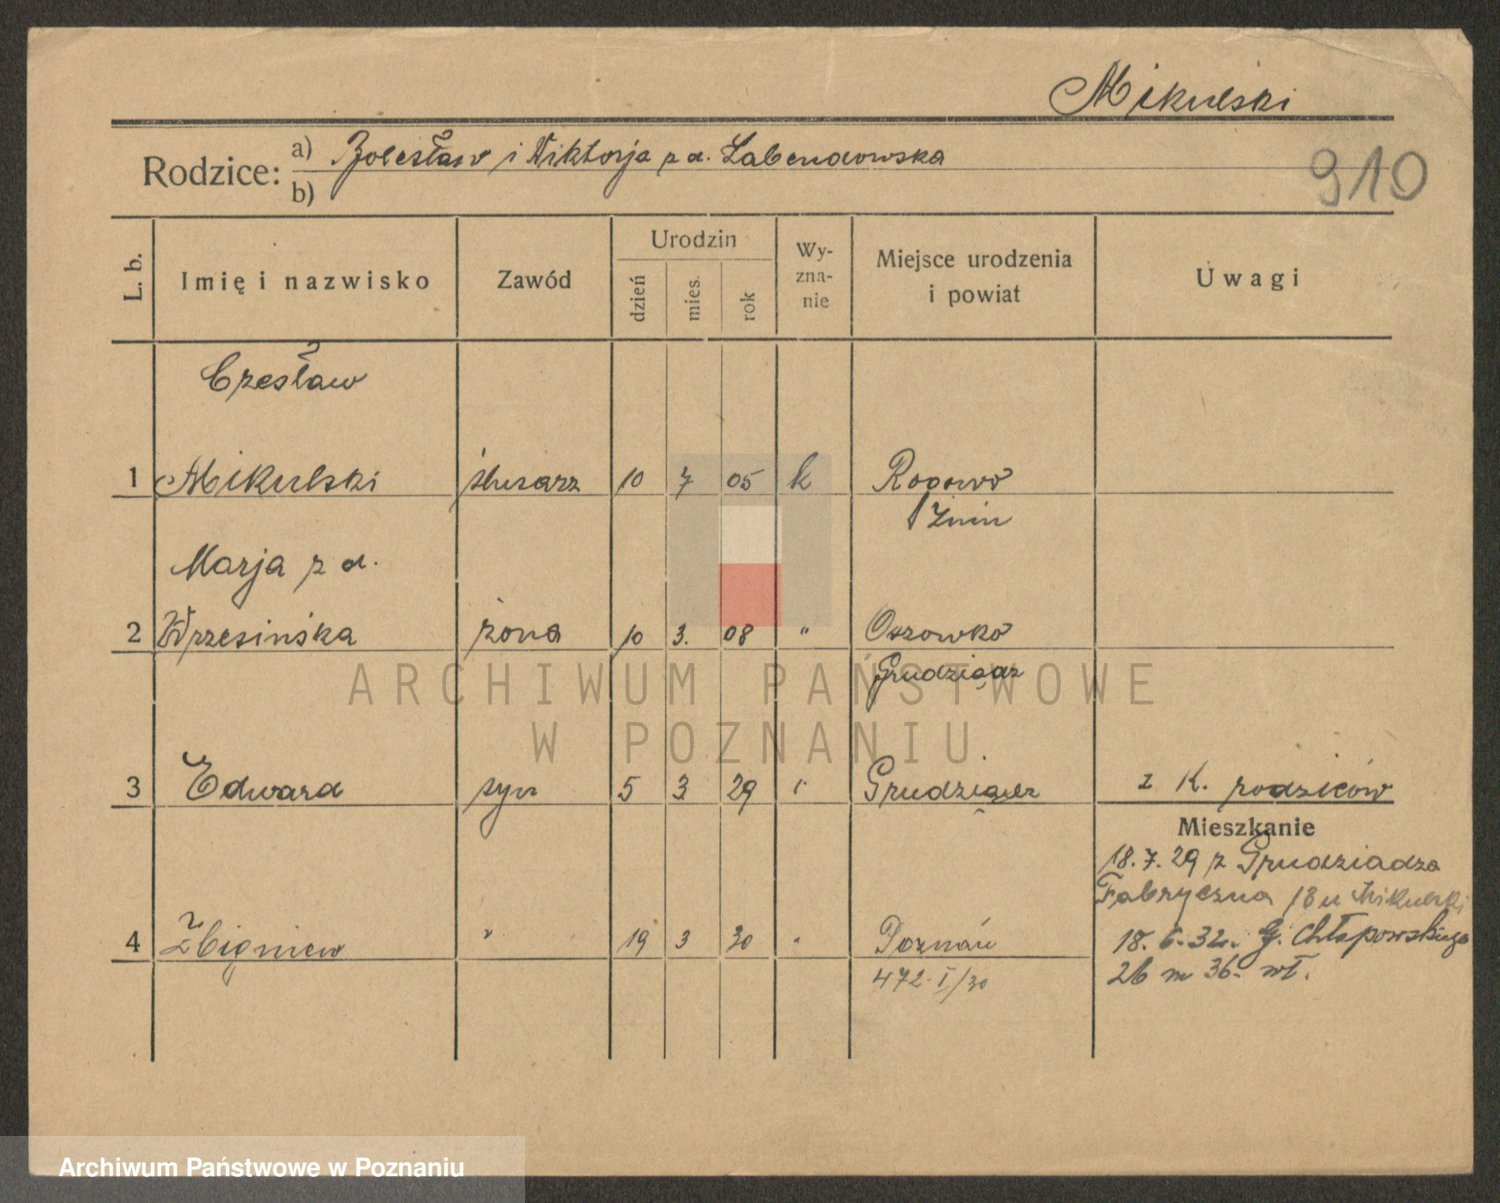 Mikulski
Rodzice: a) Bolesław i Wiktorja z d. Labendowska
b)
910
L. b. Imię i nazwisko Zawód Urodzin dzień mies. rok Wy-zna-nie Miejsce urodzenia i powiat Uwagi
Czesław
1 Mikulski ślusarz 10 7 05 k Rogowo
Żnin
Marja z d.
2 Wrzesińska żona 10 3. 08 " Ossowko
Grudziądz
3 Edward syn 5 3 29 " Grudziądz z K. rodziców
Mieszkanie
18.7.29 z Grudziadza
Fabryczna 18 u Mikulski
4 Zbigniew " 19 3 30 " Poznań
18.6.32. G. Chłapowskiego
472 I/30
26 m 36. wł.
ARCHIWUM PAŃSTWOWE
W POZNANIU
Archiwum Państwowe w Poznaniu